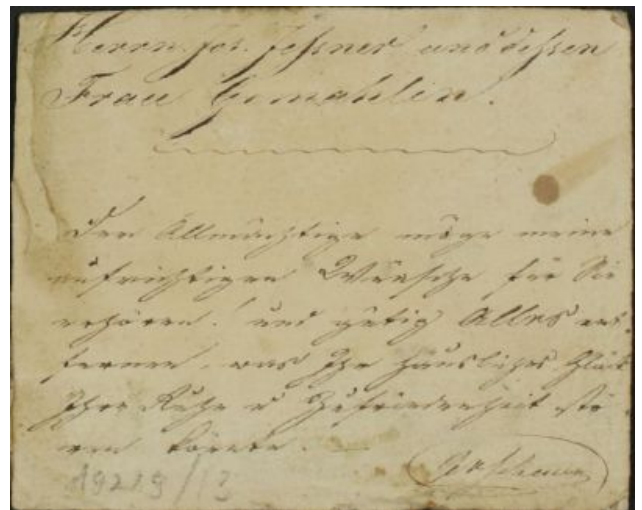 Herrn Jos. Jessner und dessen
Frau Gemahlin.
Der Allmächtige möge meine
aufrichtigen Wünsche für Sie
erhören! und gütig Alles ent-
fernen, was Ihr häusliches Glück
Ihre Ruhe u Zufriedenheit stö
ren könnte.
19219/13